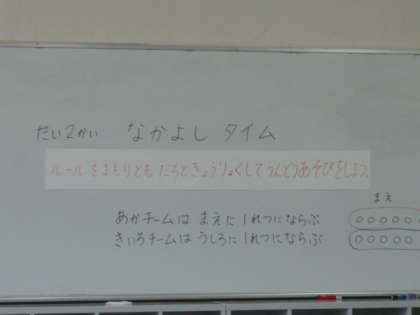 だい2かい なかよし タイム
ルールをまもりともだちときょうりょくしてうんどうあそびをしよう。
まえ
あかチームは まえに 1れつにならぶ
きいろチームは うしろに 1れつにならぶ